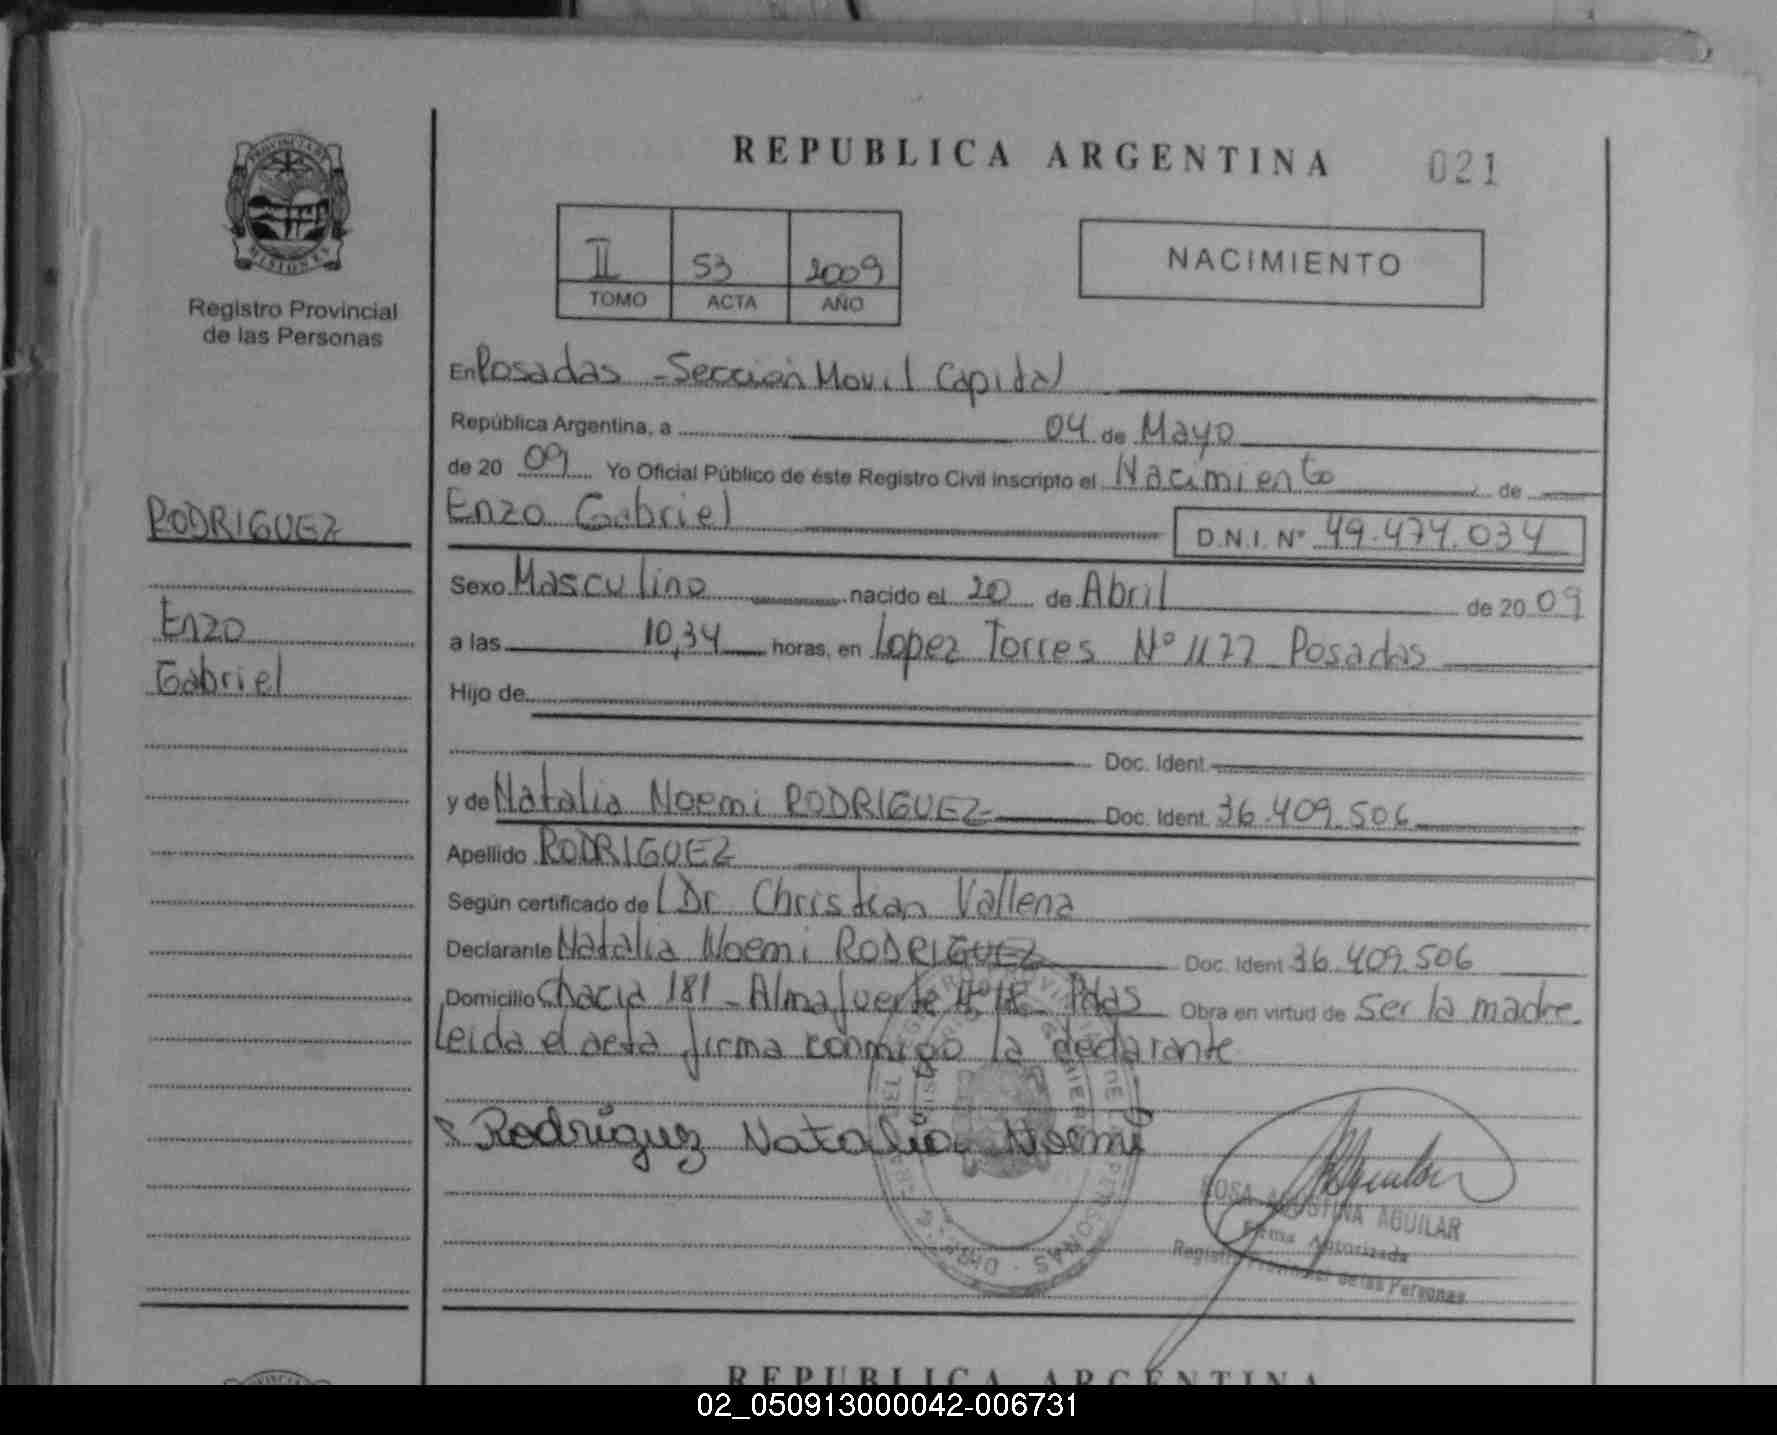 REPUBLICA ARGENTINA 021
PROVINCIA DE
MISIONES
Registro Provincial
de las Personas
II 53 2009
TOMO ACTA AÑO
NACIMIENTO
En Posadas - Sección Movil Capital
República Argentina, a 04 de Mayo
de 20 09 Yo Oficial Público de éste Registro Civil inscripto el Nacimiento de
Enzo Gabriel D.N.I. Nº 49.474.034
RODRIGUEZ
Enzo
Gabriel
Sexo Masculino nacido el 20 de Abril de 20 09
a las 10,34 horas, en Lopez Torres Nº 1177 Posadas
Hijo de
Doc. Ident.
y de Natalia Noemi RODRIGUEZ Doc. Ident. 36.409.506
Apellido RODRIGUEZ
Según certificado de Dr Christian Vallena
Declarante Natalia Noemi RODRIGUEZ Doc. Ident 36.409.506
Domicilio Chacra 181 - Almafuerte Nº 18 Pdas Obra en virtud de Ser la madre.
Leida el acta firma conmigo la declarante
Rodriguez Natalia Noemi
ROSA AGUSTINA AGUILAR
Firma Autorizada
Registro Provincial de las Personas
REPUBLICA ARGENTINA
02_050913000042-006731